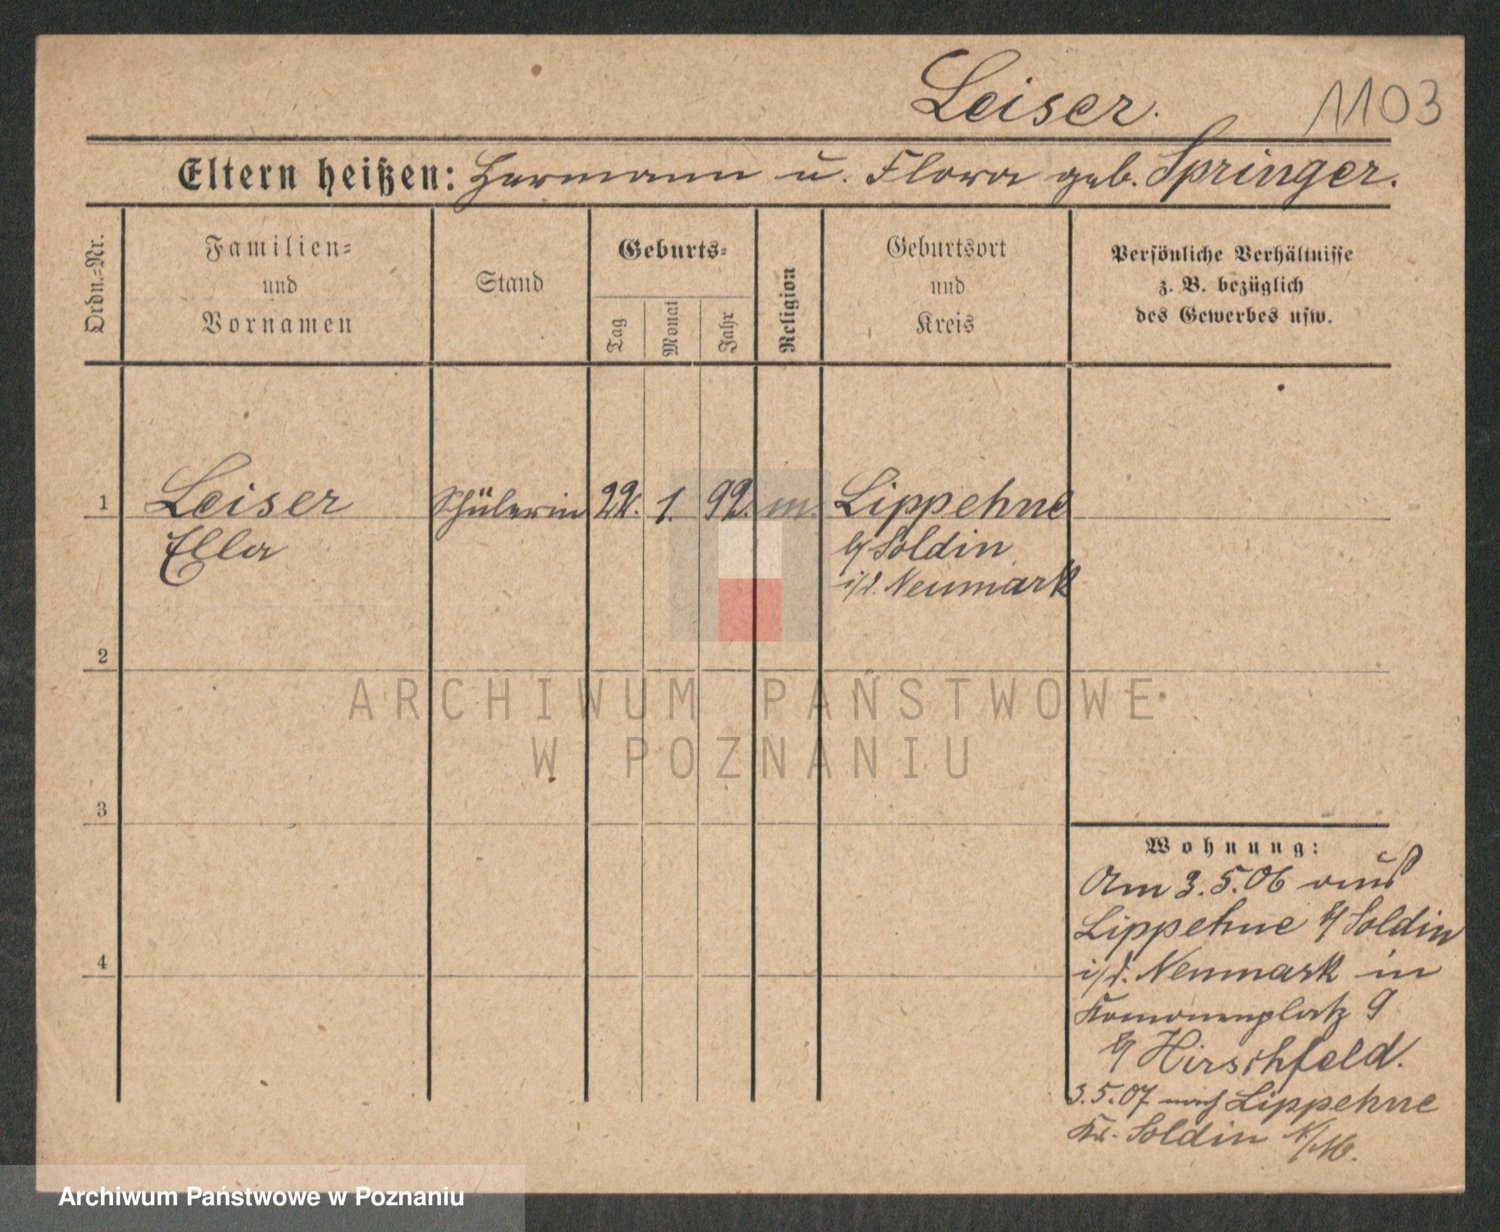 Leiser. 1103
Eltern heißen: Hermann u. Flora geb. Springer.
Ordn.=Nr.
Familien=
und
Vornamen
Stand
Geburts=
Tag
Monat
Jahr
Religion
Geburtsort
und
Kreis
Persönliche Verhältnisse
z. B. bezüglich
des Gewerbes usw.
1 Leiser Schülerin 22. 1. 92. m. Lippehne
Ella b/ Soldin
i/d. Neumark
2
3
4
Wohnung:
Am 3.5.06 aus
Lippehne b/ Soldin
i/d. Neumark in
9
b/ Hirschfeld.
3.5.07 nach Lippehne
Kr. Soldin N/M.
ARCHIWUM PAŃSTWOWE
W POZNANIU
Archiwum Państwowe w Poznaniu